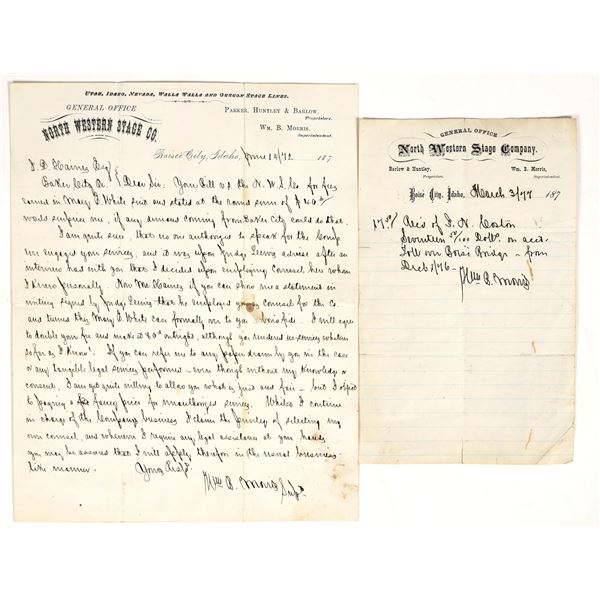 UTAH, IDAHO, NEVADA, WALLA WALLA AND OREGON STAGE LINES.
GENERAL OFFICE
NORTH WESTERN STAGE CO.
PARKER, HUNTLEY & BARLOW,
Proprietors.
WM. B. MORRIS,
Superintendent.
Boise City, Idaho, June 14/72 187
I. D. Haines Esq
Baker City Or. Dear Sir. Your Bill v.s. the N. W. S. Co. for fees
earned in Mary F. White suit was stated at the round sum of $400
would surprise me, if any demand coming from Baker City could do that.
I am quite sure, that no one authorized to speak for the Comp
engaged your services, and it was upon Judge advice after an
interview had with you that I decided upon employing Counsel here whom
I knew personally. Now Mr Haines if you can show me a statement in
writing signed by Judge that he employed you as counsel for the Co
and turned this Mary F. White case formally over to you I will agree
to double your fee and make it 80 outright, although you rendered no services whatever
so far as I know. If you can refer me to any paper drawn by you in the case
or any tangible legal service performed - even though without my knowledge or
consent, I am quite willing to allow you what is just and fair - but I object
to paying a fancy price for unauthorized services. Whilst I continue
in charge of the Companys business I claim the privilege of selecting my
own counsel, and whenever I require any legal assistance at your hands
you may be assured that I will apply therefor in the usual business
like manner. Yours Resp.
Wm B. Morris Supt.
GENERAL OFFICE
North Western Stage Company.
Barlow & Huntley,
Proprietors.
Wm. B. Morris,
Superintendent.
Boise City, Idaho, March 3/77 187
17.50 Rec'd of I. N. Coston
Seventeen 50/100 Dolls. on acct.
Toll over Boise Bridge - from
Dec 1/76 -
Wm B. Morris